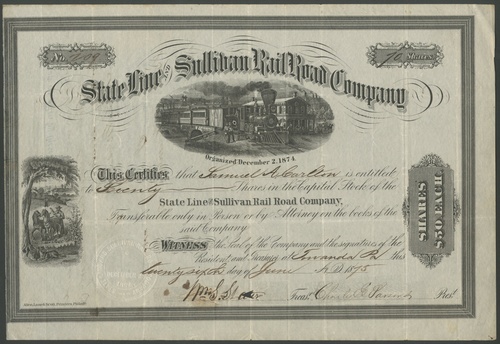 No. 279
70 Shares
State Line and Sullivan Rail Road Company
Organized December 2, 1874.
This Certifies that Samuel A. Carlton is entitled
to Seventy Shares in the Capital Stock of the
State Line and Sullivan Rail Road Company,
Transferable only in Person or by Attorney on the books of the
said Company
Witness the Seal of the Company and the signatures of the
President and Treasurer at Towanda Pa this
twenty sixth day of June A.D. 1875
Treas. Pres.
SHARES $50 EACH.